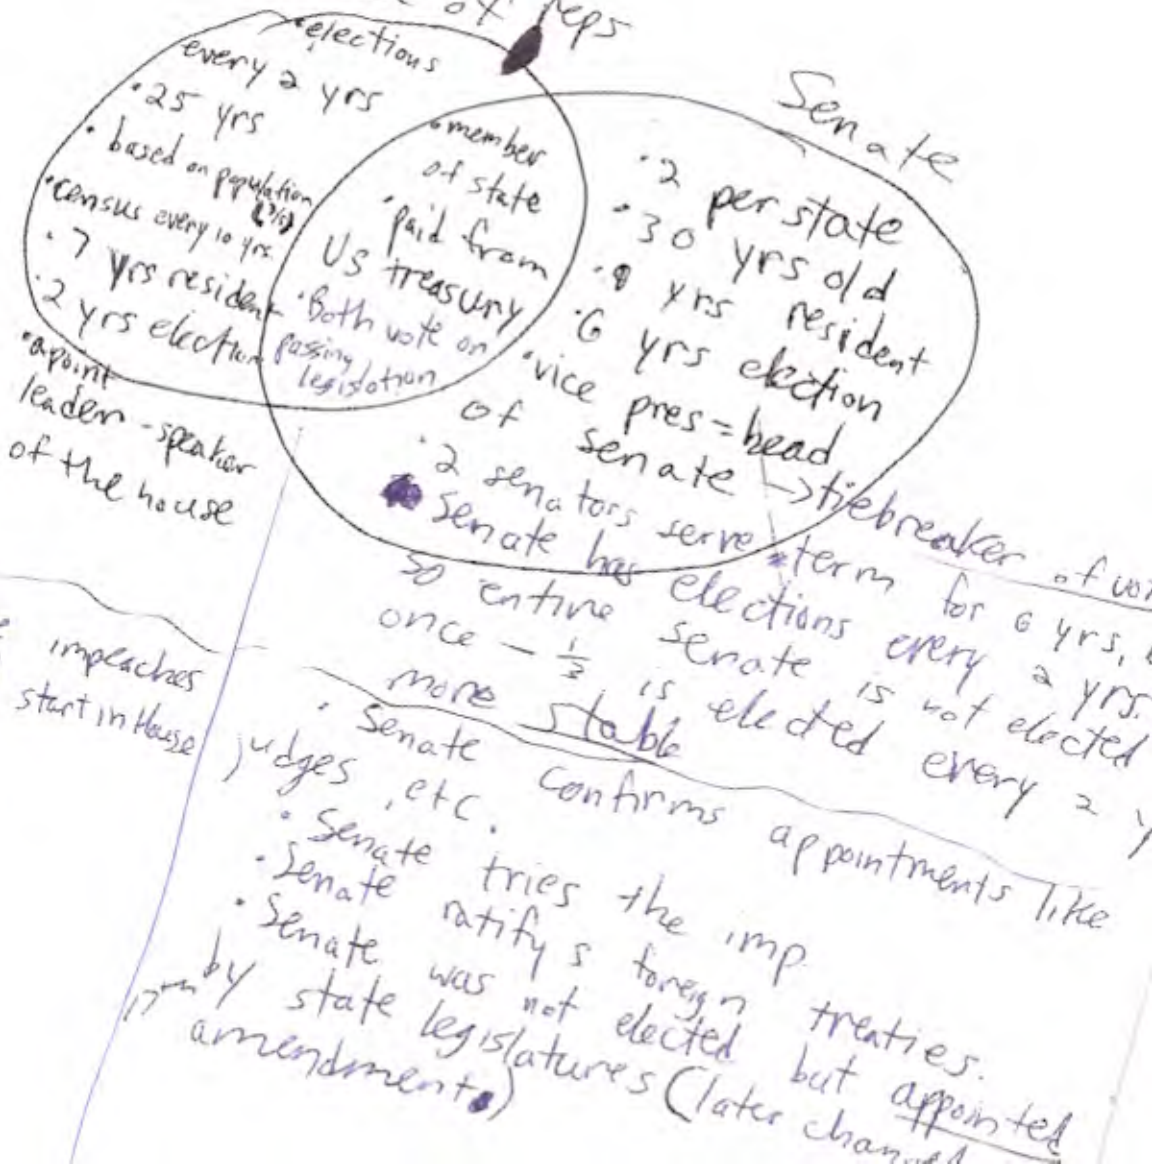 of Reps
• elections
every 2 yrs
• 25 yrs
• based on population
(3/5)
• census every 10 yrs.
• 7 yrs resident
• 2 yrs election
• apoint
leader - speaker
of the house
impeaches
start in House
• member
of state
• paid from
US treasury
• Both vote on
passing
legislation
Senate
• 2 per state
• 30 yrs old
• 9 yrs resident
• 6 yrs election
• vice pres = head
of senate → tiebreaker of
• 2 senators serve term for 6 yrs,
Senate has elections every 2 yrs.
so entire senate is not elected
once - 1/3 is elected every 2
more stable
• Senate confirms appointments like
judges, etc.
• Senate tries the imp.
• Senate ratifys foreign treaties.
• Senate was not elected but appointed
by state legislatures (later changed
17th amendment)